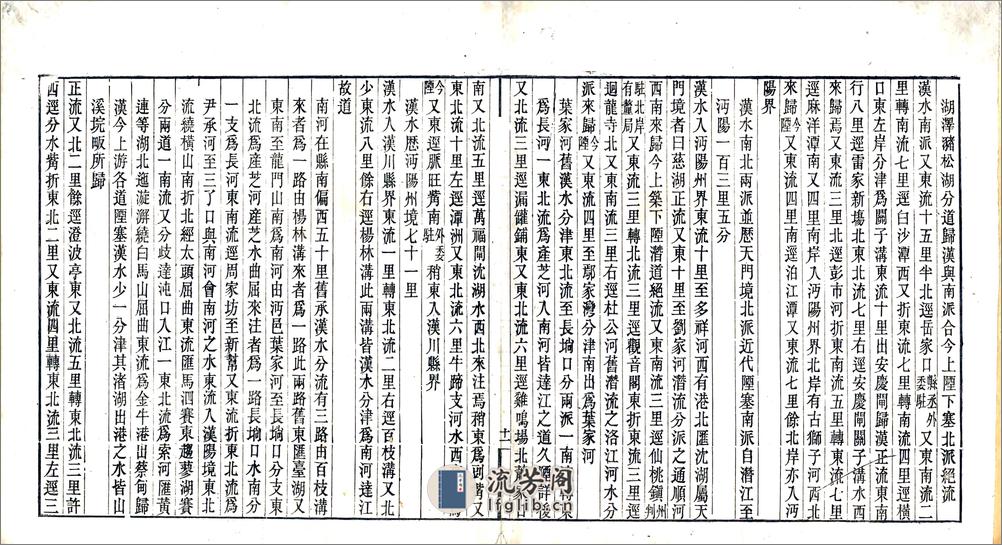 湖澤豬松湖分道歸漢與南派合今上陻下塞北派絕流
漢水南派又東流十五里半北逕岳家口縣丞外委駐又東南流二
里轉南流七里逕白沙潭西又折東流七里轉南流四里逕橫
口東左岸分津爲關子溝東十里出安慶閘歸漢正流東南
行八里逕雷家新場北東北流七里右逕安慶閘關子溝水西
來歸焉又東流三里北逕彭市河折東南流五里轉東流七里
逕麻洋潭南又四里南岸入沔陽州界北岸有古獅子河西北
來歸今陻又東流四里南逕泊江潭又東流七里餘北岸亦入沔
陽界
沔陽一百三里五分
漢水南北兩派並歷天門境北派近代陻塞南派自潛江至
漢水入沔陽州界東流十里至多祥河西有港北匯沈湖屬天
門境者曰慈湖正流又東十里至劉家河潛流分派之通順河
西南來歸今上築下陻潛道絕流又東南流三里逕仙桃鎮州判
駐北岸有釐局又東流三里轉北流三里逕觀音閣東折東流三里
迴龍寺北又東北流三里右逕杜公河舊潛流之洛江河分
派來歸今陻又東流四里至鄢家灣分津南出爲葉家河
葉家河舊漢水分津東北流至長埫口分兩派一南
爲長河一東北流爲產芝河入南河皆達江之道久陻詳後
又北流三里逕漏㵽鋪東又東北流六里逕雞鳴場北
南又北流五里逕萬福閘沈湖水西北來注焉稍東爲
東北流十里左逕潭洲又東北流六里牛蹄支河水西
今陻又東逕脈旺觜南外委駐稍東入漢川縣界
漢水歷沔陽州境七十一里
漢水入漢川縣界東流一里轉東北流二里右逕百枝溝又北
少東流八里餘右逕楊林溝此兩溝皆漢水分津爲南河達江
故道
南河在縣南偏西五十里舊承漢水分流有三路由百枝溝
來者爲一路由楊林溝來者爲一路此兩路舊東匯臺湖又
東南至龍門山南河由沔邑葉家河至長埫口分支東
北流爲產芝河產芝水曲屈來注者爲一路長埫口水南分
一支爲長河東南流逕周家坊至新幫又東流折東北流爲
尹承河至三了口與南河會南河之水東流入漢陽境東北
流繞橫山南折北經太頭屈曲東流匯馬泗賽東趨蓼湖賽
分兩道一南流又分歧達沌口入江一東北流爲索河匯黃
連等湖北迤漩澥繞白馬山屈曲東流爲金牛港出蔡甸歸
漢今上游各道陻塞漢水少一分津其渚湖出港之水皆山
溪垸畈所歸
正流又北二里餘逕澄波亭東又北流五里轉東北流三里許
西逕分水觜折東北二里又東流四里轉東北流三里左逕三
十一
流芳阁